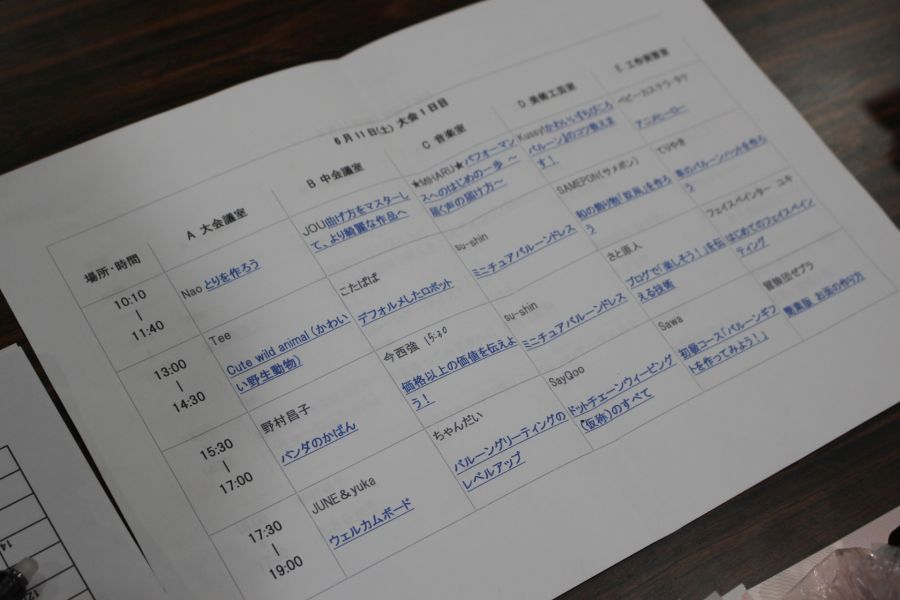 6月11日(土) 大会1日目
場所・時間
A 大会議室
B 中会議室
C 音楽室
D 美術工芸室
E 工作実習室
10:10
|
11:40
Nao とりを作ろう
JOU曲げ方をマスターし
て、より綺麗な作品へ
★MIHARU★パフォーマン
スへのはじめの一歩 ～
届く声の届け方～
バルーン
のコツ教えま
す！
ベビーカステラ・タケ
アニメヒーロー
13:00
|
14:30
Tee
Cute wild animal (かわい
い野生動物)
こたぱぱ
デフォルメしたロボット
su-shin
ミニチュアバルーンドレス
SAMEPON(サメポン)
和の飾り物
を作ろ
う
てりやき
バルーンハットを作ろ
う
15:30
|
17:00
野村昌子
パンダのかばん
今西強 15:30
価格以上の価値を伝えよ
う！
su-shin
ミニチュアバルーンドレス
さと原人
ブログで「楽しそう！」を伝
える技術
フェイスペインター ユキ
はじめてのフェイスペイン
ティング
17:30
|
19:00
JUNE＆yuka
ウェルカムボード
ちゃんだい
バルーングリーティングの
レベルアップ
SayQoo
ドットチェーンウィービング
(仮称)のすべて
Sawa
初級コース「バルーンギフ
トを作ってみよう！」
冒険団ゼブラ
お茶の作り方
14